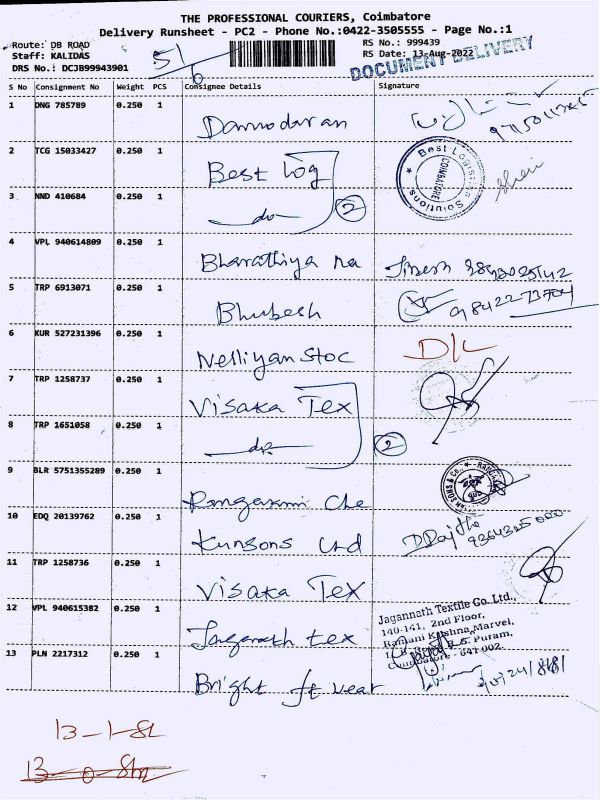 THE PROFESSIONAL COURIERS, Coimbatore
Delivery Runsheet - PC2 - Phone No.:0422-3505555 - Page No.:1
Route: DB ROAD
Staff: KALIDAS
DRS No.: DCJB99943901
RS No.: 999439
RS Date: 13-Aug-2022
DOCUMENT DELIVERY
S No Consignment No Weight PCS Consignee Details Signature
1 DNG 785789 0.250 1 Damodaran
2 TCG 15033427 0.250 1 Best Log
Best Logistics Solutions
COIMBATORE
3 NND 410684 0.250 1 do 2
4 VPL 940614809 0.250 1 Bharathiya
5 TRP 6913071 0.250 1 Bhubesh
6 KUR 527231396 0.250 1 Nelliyan Stoc D/L
7 TRP 1258737 0.250 1 Visaka Tex
8 TRP 1651058 0.250 1 do 2
9 BLR 5751355289 0.250 1
10 EDQ 20139762 0.250 1 Kunsons Ltd
11 TRP 1258736 0.250 1 Visaka Tex
12 VPL 940615382 0.250 1 Jaganath tex
Jaganneth Textile Co. Ltd.,
140-141, 2nd Floor,
Krishna Marvel,
R.S. Puram,
Coimbatore - 641 002.
13 PLN 2217312 0.250 1 Bright
13-1-